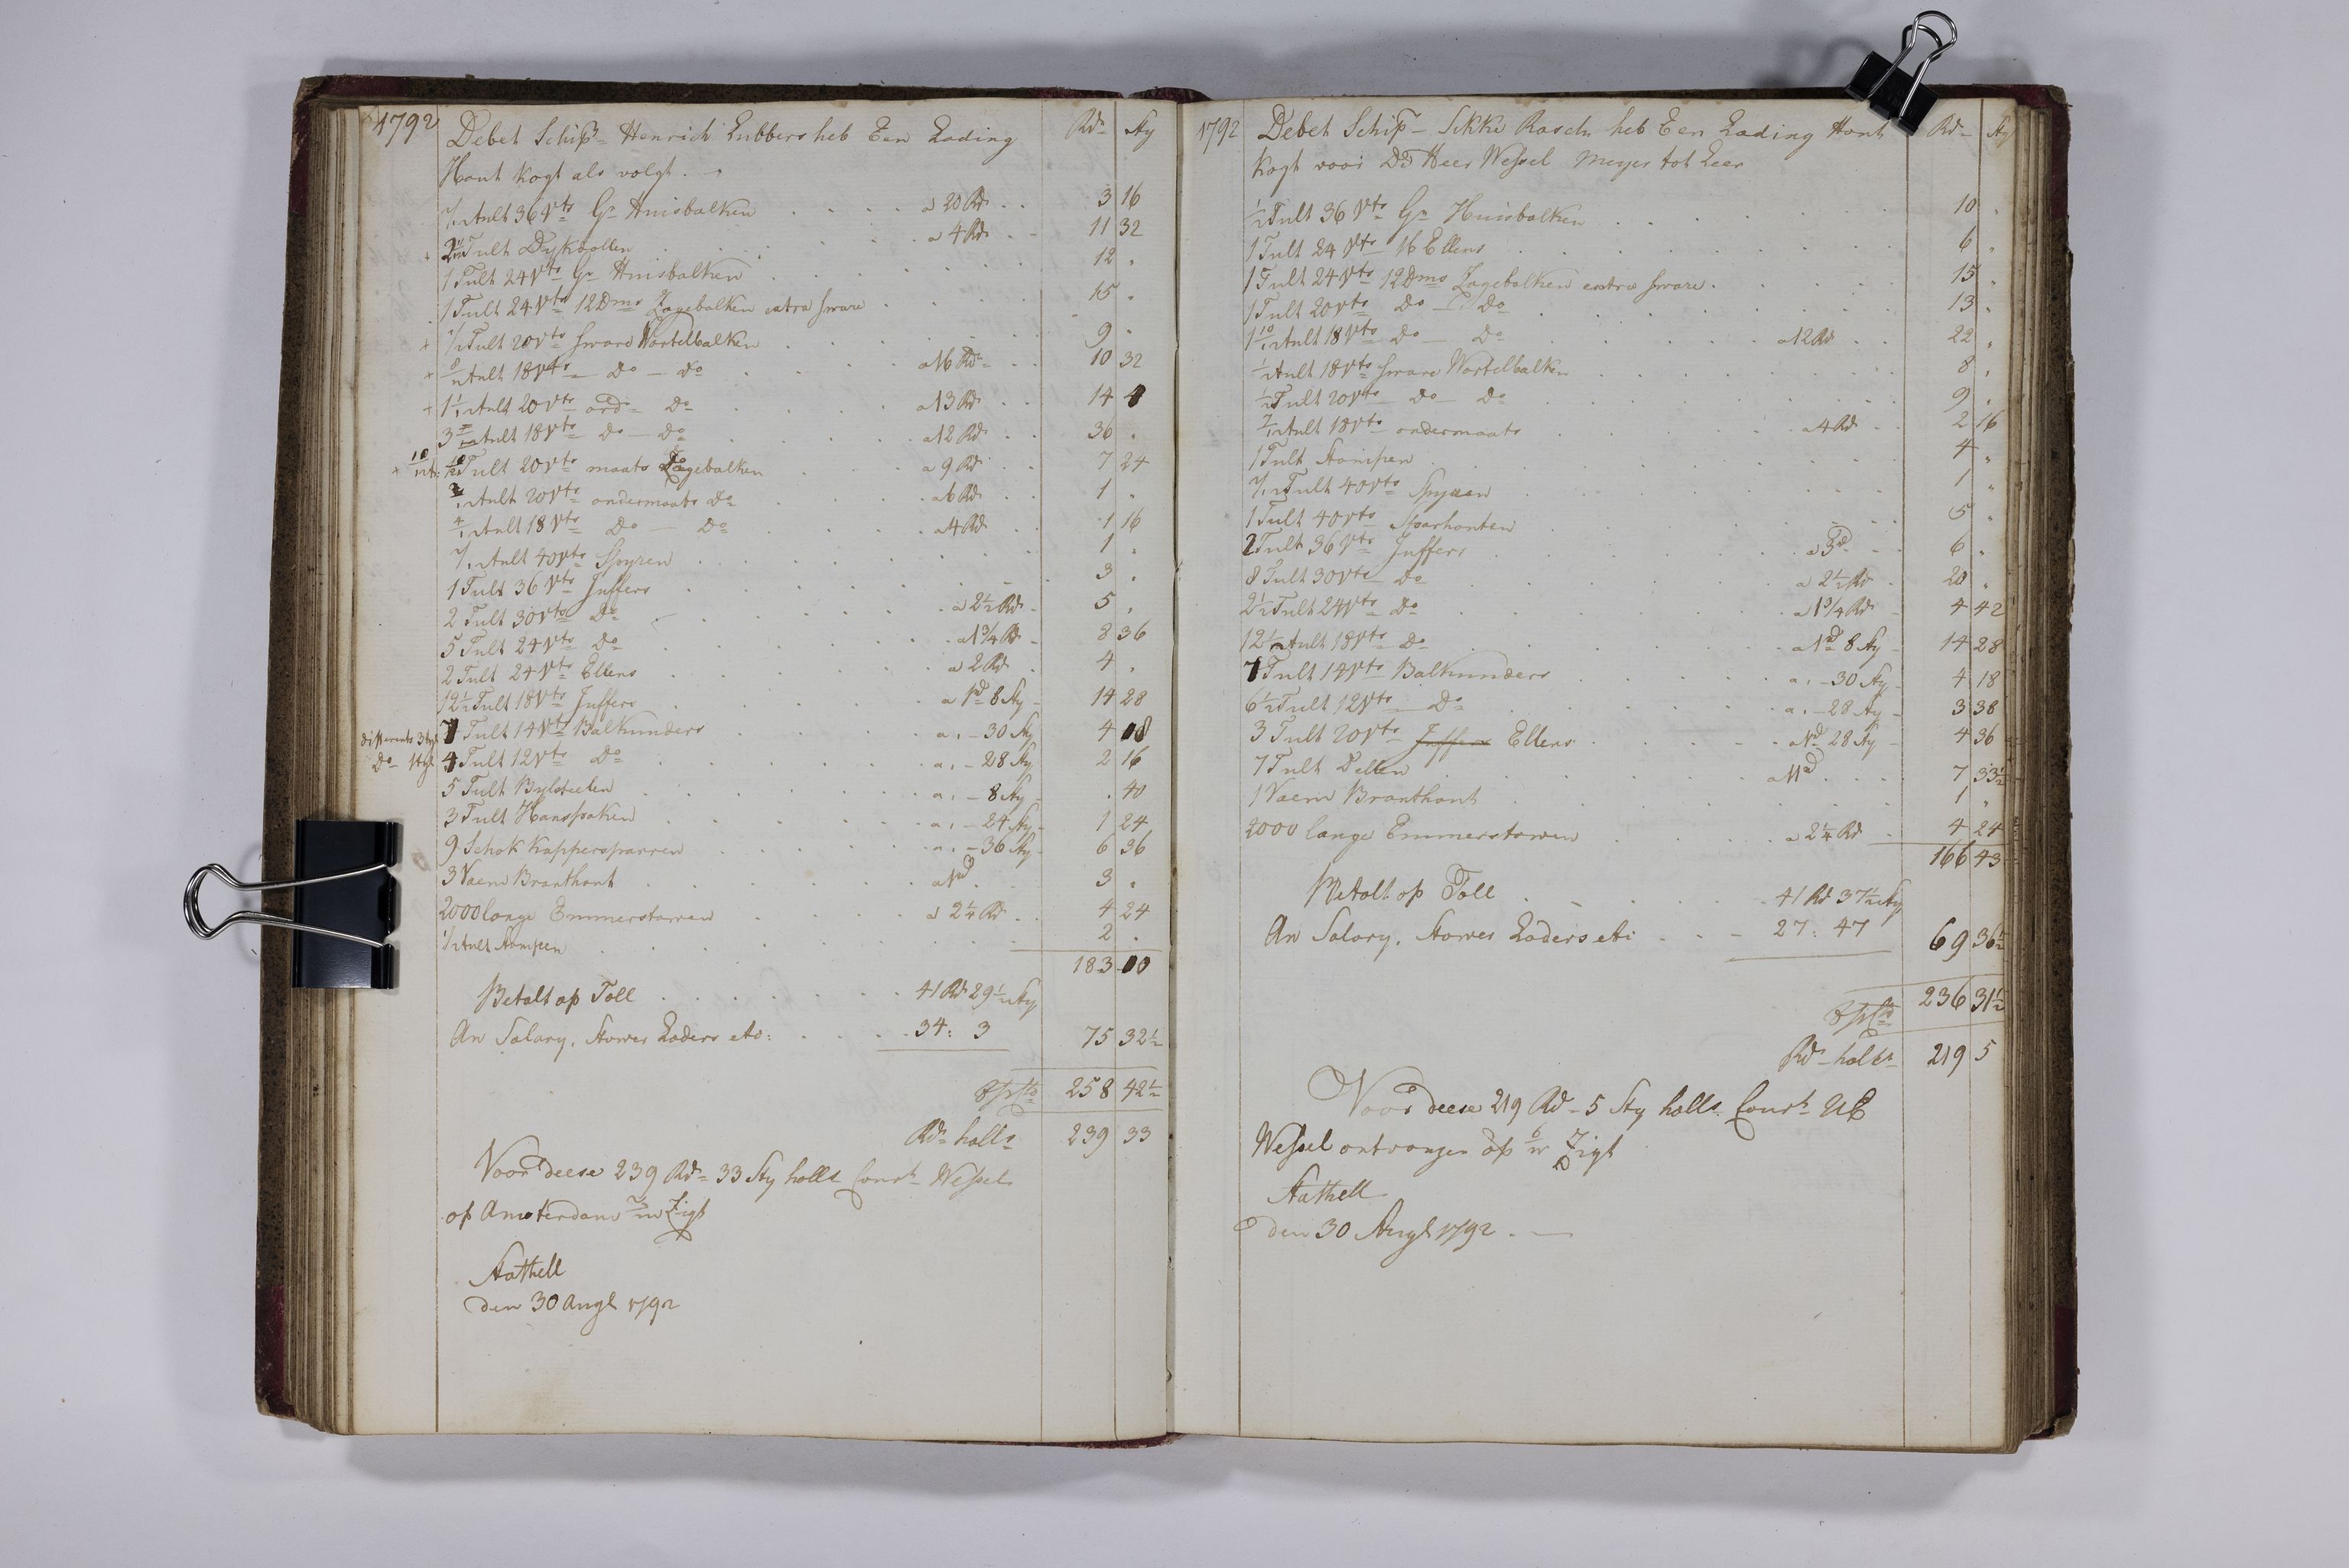 1792 Debet Schipr Henrich Lubbers heb Een Lading Rdr Sty
Hout kogt als volgt.
2/12 Tult 36 Vts Gr Huisbalken a 20 Rdr 3 16
Tult Dykdollen a 4 Rdr 11 32
1 Tult 24 Vts Gr Huisbalken 12 .
1 Tult 24 Vts 12 Dms Zagebalken extra sware 15 .
1/2 Tult 20 Vts sware Wortelbalken 9 .
8/12 Tult 18 Vts Do Do a 16 Rdr 10 32
1 1/12 Tult 20 Vts ord. Do a 13 Rdr 14 4
3 Tult 18 Vts Do Do a 12 Rdr 36 .
10/12 Tult 20 Vts maats Zagebalken a 9 Rdr 7 24
Tult 20 Vts ondermaats Do a 6 Rdr 1 .
4/12 Tult 18 Vts Do Do a 4 Rdr 1 16
Tult 40 Vts Spyren 1 .
1 Tult 36 Vts Juffers 3 .
2 Tult 30 Vts Do a 2 1/2 Rdr 5 .
5 Tult 24 Vts Do a 1 3/4 Rdr 8 36
2 Tult 24 Vts Ellens a 2 Rdr 4 .
12 1/2 Tult 18 Vts Juffers a 1 rd 8 Sty 14 28
7 Tult 14 Vts Balkunders a . - 30 Sty 4 18
4 Tult 12 Vts Do a . - 28 Sty 2 16
5 Tult Bylsteelen a . - 8 Sty . 40
3 Tult Hanspaken a . - 24 Sty 1 24
9 Schok Kappersparren a . - 36 Sty 6 36
3 Vaem Branthout a 1 rd 3 .
2000 lange Emmerstaven a 2 1/4 Rdr 4 24
1/2 Tult Stompen 2 .
183 10
Betalt op Toll 41 Rdr 29 1/2 Sty
An Salary, Stower Laders etc: 34: 3 75 32 1/2
258 42 1/2
Rdr hollr 239 33
Voor deese 239 Rdr 33 Sty hollr Courk Wessel
op Amsterdam Zigt
Stathell
den 30 Augt 1792
1792 Debet Schipr Sikke Rasch heb Een Lading Hout Rdr Sty
kogt voor Do Heer Wessel Meyer tot Leer
1/2 Tult 36 Vts Gr Huisbalken 10 .
1 Tult 24 Vts 16 Ellens 6 .
1 Tult 24 Vts 12 Dms Zagebalken extra sware 15 .
1 Tult 20 Vts Do Do 13 .
1 10/12 Tult 18 Vts Do Do a 12 Rdr 22 .
1/2 Tult 18 Vts sware Wortelbalken 8 .
1/2 Tult 20 Vts Do Do 9 .
7/12 Tult 18 Vts ondermaats a 4 Rdr 2 16
1 Tult Stompen 4 .
Tult 40 Vts Spyren 1 .
1 Tult 40 Vts Sparhouten 5 .
2 Tult 36 Vts Juffers a 3 rd 6 .
8 Tult 30 Vts Do a 2 1/2 Rdr 20 .
2 1/2 Tult 24 Vts Do a 1 3/4 Rdr 4 42
12 1/2 Tult 18 Vts Do a 1 rd 8 Sty 14 28
7 Tult 14 Vts Balkunders a . - 30 Sty 4 18
6 1/2 Tult 12 Vts Do a . - 28 Sty 3 38
3 Tult 20 Vts Juffers Ellens a 1 rd 28 Sty 4 36
7 Tult Dellen 7 33 1/2
1 Vaem Branthout 1 .
2000 lange Emmerstaven a 2 1/4 Rdr 4 24
166 43
Betalt op Toll 41 Rdr 37 1/2 Sty
An Salary, Stower Laders etc 27: 47 69 36 1/2
236 31 1/2
Rdr hollr 219 5
Voor deese 219 Rdr 5 Sty hollr Courk UE
Wessel ontvangen op Zigt
Stathell
den 30 Augt 1792